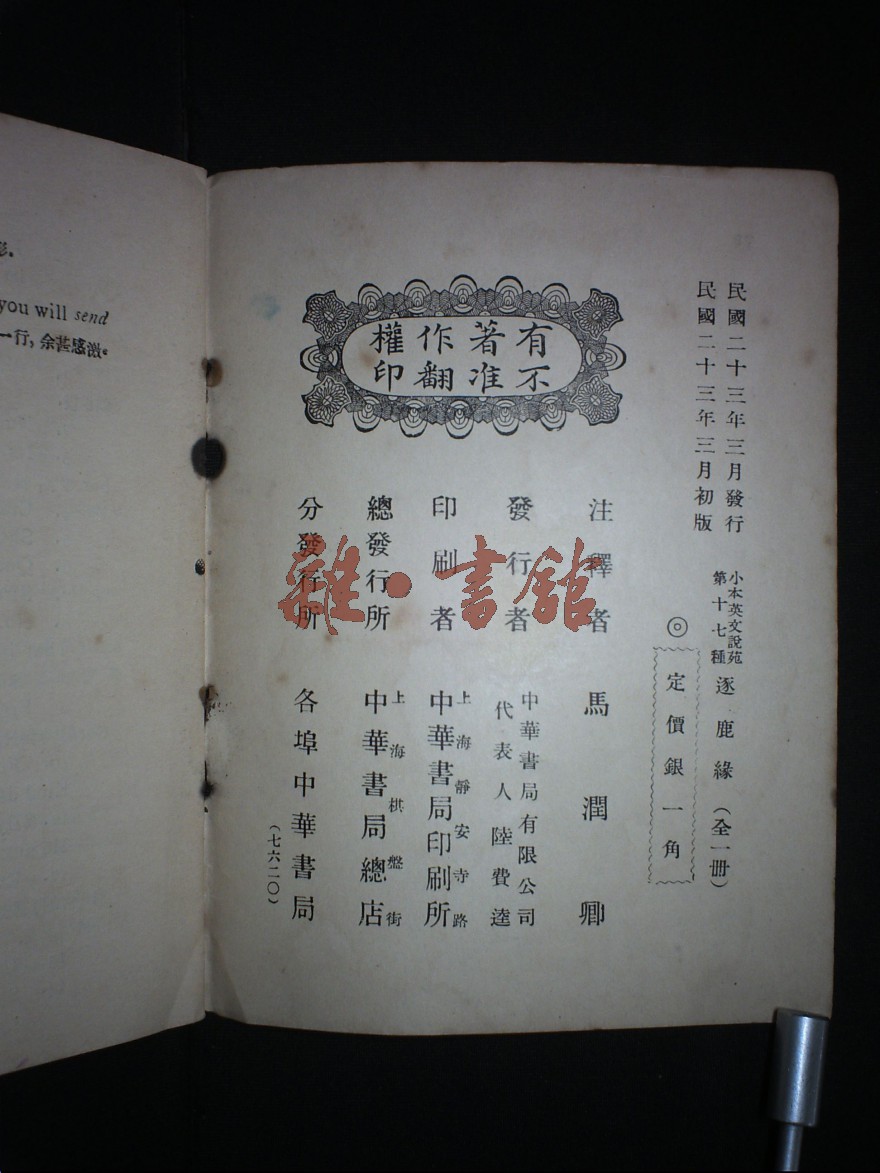 彩.
you will send
一行, 余甚感激。
民國二十三年三月發行
民國二十三年三月初版
小本英文說苑
第十七種
逐鹿緣（全一册）
◎定價銀一角
有著作權
不准翻印
注釋者 馬潤卿
發行者 中華書局有限公司
代表人陸費逵
印刷者 上海靜安寺路
中華書局印刷所
總發行所 上海棋盤街
中華書局總店
分發行所 各埠中華書局
（七六二〇）
雜·書館